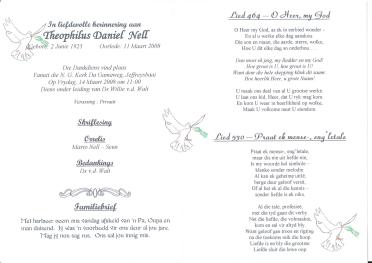 In liefdevolle herinnering aan
Theophilus Daniel Nell
Gebore: 2 Junie 1925 Oorlede: 11 Maart 2008
Die Dankdiens vind plaas
Vanuit die N. G. Kerk Da Gamaweg, Jeffreysbaai
Op Vrydag, 14 Maart 2008 om 11:00
Diens onder leiding van Ds Willie v.d. Walt
Verassing : Privaat
Skriflesing
Orrelis
Marro Nell - Seun
Bedankings
Ds v.d. Walt
Familiebrief
Met hartseer neem ons vandag afskeid van 'n Pa, Oupa en
man duisend. Jy was 'n voorbeeld vir ons deur al jou jare.
Mag jy nou sag rus. Ons sal jou innig mis.
Lied 464 – O Heer, my God
O Heer my God, as ek in eerbied wonder -
En al u werke elke dag aanskou
Die son en maan, die aarde, sterre, wolke,
Hoe U dit elke dag so onderhou.
Dan moet ek juig, my Redder en my God!
Hoe groot is U, hoe groot is U!
Want deur die hele skepping klink dit saam:
Hoe heerlik Heer, u grote Naam!
U maak ons deel van al U grootse werke
U laat ons bid, Heer, dat U ryk mag kom
En kom U weer in heerlikheid op wolke,
Maak U volkome naar U eiendom.
Lied 530 – Praat ek mense-, eng'letale
Praat ek mense-, eng'letale,
maar dit nie uit liefde nie,
is my woorde hol simbole -
Klanke sonder melodie
Al kan ek geheime uitlê
berge deur geloof versit.
Of al het ek die kennis -
sonder liefde het ek niks.
Al die tale, profesieë,
met die tyd gaan dit verby.
Net die liefde, die volmaakte,
kom en sal vir altyd bly
Want geloof gaan troos en rigting
na die toekoms ook die hoop
Liefde is en bly die grootste
Liefde sluit die lewe oop